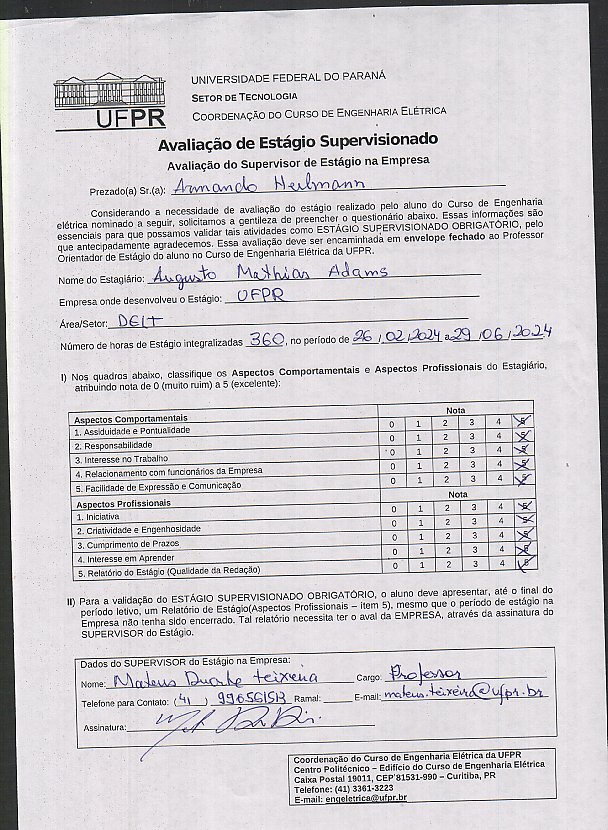 UNIVERSIDADE FEDERAL DO PARANÁ
SETOR DE TECNOLOGIA
COORDENAÇÃO DO CURSO DE ENGENHARIA ELÉTRICA
UFPR
Avaliação de Estágio Supervisionado
Avaliação do Supervisor de Estágio na Empresa
Prezado(a) Sr.(a): Armando Heilmann
Considerando a necessidade de avaliação do estágio realizado pelo aluno do Curso de Engenharia
elétrica nominado a seguir, solicitamos a gentileza de preencher o questionário abaixo. Essas informações são
essenciais para que possamos validar tais atividades como ESTÁGIO SUPERVISIONADO OBRIGATÓRIO, pelo
que antecipadamente agradecemos. Essa avaliação deve ser encaminhada em envelope fechado ao Professor
Orientador de Estágio do aluno no Curso de Engenharia Elétrica da UFPR.
Nome do Estagiário: Augusto Mathias Adams
Empresa onde desenvolveu o Estágio: UFPR
Área/Setor: DELT
Número de horas de Estágio integralizadas 360, no período de 26/02/2024 a 29/06/2024
I) Nos quadros abaixo, classifique os Aspectos Comportamentais e Aspectos Profissionais do Estagiário,
atribuindo nota de 0 (muito ruim) a 5 (excelente):
Aspectos Comportamentais Nota
1. Assiduidade e Pontualidade 0 1 2 3 4 5
2. Responsabilidade 0 1 2 3 4 5
3. Interesse no Trabalho 0 1 2 3 4 5
4. Relacionamento com funcionários da Empresa 0 1 2 3 4 5
5. Facilidade de Expressão e Comunicação 0 1 2 3 4 5
Aspectos Profissionais Nota
1. Iniciativa 0 1 2 3 4 5
2. Criatividade e Engenhosidade 0 1 2 3 4 5
3. Cumprimento de Prazos 0 1 2 3 4 5
4. Interesse em Aprender 0 1 2 3 4 5
5. Relatório do Estágio (Qualidade da Redação) 0 1 2 3 4 5
II) Para a validação do ESTÁGIO SUPERVISIONADO OBRIGATÓRIO, o aluno deve apresentar, até o final do
período letivo, um Relatório de Estágio(Aspectos Profissionais – item 5), mesmo que o período de estágio na
Empresa não tenha sido encerrado. Tal relatório necessita ter o aval da EMPRESA, através da assinatura do
SUPERVISOR do Estágio.
Dados do SUPERVISOR do Estágio na Empresa:
Nome: Mateus Duarte Teixeira Cargo: Professor
Telefone para Contato: (41) Ramal: E-mail: mateus.teixeira@ufpr.br
Assinatura:
Coordenação do Curso de Engenharia Elétrica da UFPR
Centro Politécnico – Edifício do Curso de Engenharia Elétrica
Caixa Postal 19011, CEP 81531-990 – Curitiba, PR
Telefone: (41) 3361-3223
E-mail: engeletrica@ufpr.br